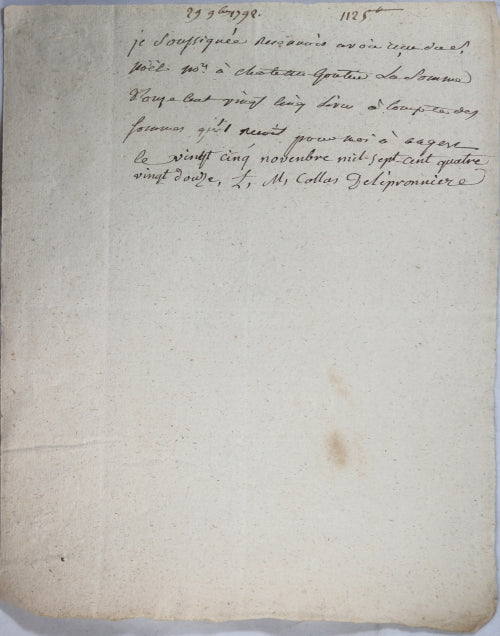 29 9bre 1792. 1125lt
je Soussignée Reconnois avoir reçu de Mr
Noël Nore à chateau Gontier La Somme
D'onze Cent vingt Cinq Livres à Compte des
Sommes qu'il reçoit pour moi à angers
le vingt cinq novenbre mil-sept cint quatre
vingt douze, L, M, Collas Delépronniere